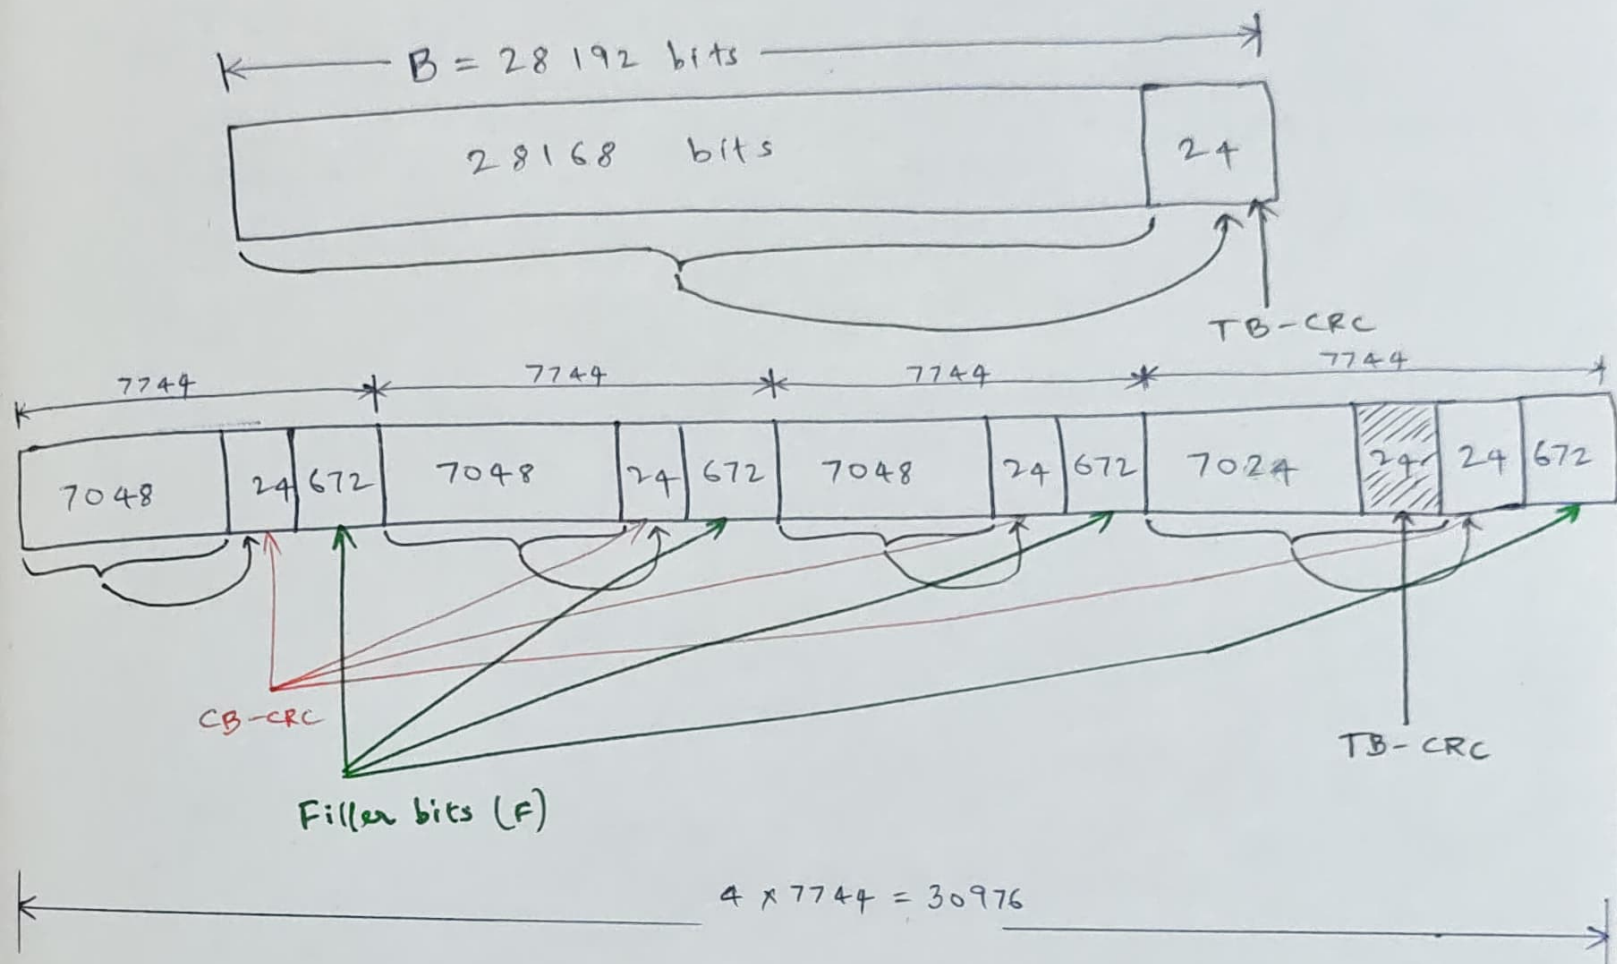 B = 28192 bits
28168 bits 24
TB-CRC
7744 7744 7744 7744
7048 24 672 7048 24 672 7048 24 672 7024 24 24 672
CB-CRC
TB-CRC
Filler bits (F)
4 x 7744 = 30976